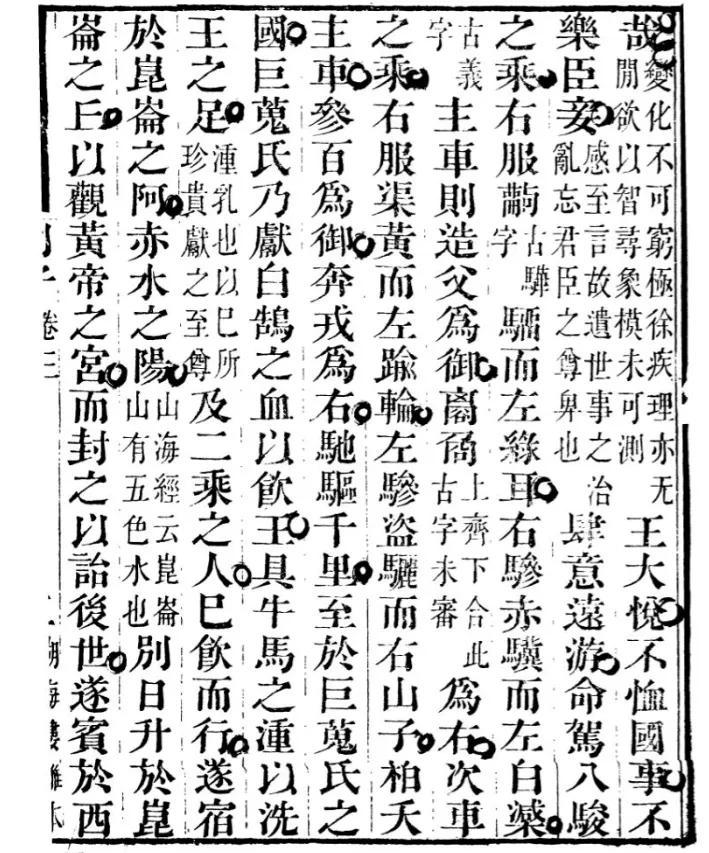 哉變化不可窮極徐疾理亦无閒欲以智尋象模未可測王大悅不恤國事不
樂臣妾感至言故遺世事之治亂忘君臣之尊卑也肆意遠游命駕八駿
之乘右服古驊字騮而左綠耳右驂赤驥而左白𣚘
古義字主車則造父爲御上齊下合此古字未審爲右次車
之乘右服渠黃而左踰輪左驂盜驪而右山子柏夭
主車參百爲御奔戎爲右馳驅千里至於巨蒐氏之
國巨蒐氏乃獻白鵠之血以飲王具牛馬之湩以洗
王之足湩乳也以巳所珍貴獻之至尊及二乘之人巳飲而行遂宿
於崑崙之阿赤水之陽山海經云崑崙山有五色水也別日升於崑
崙之丘以觀黃帝之宮而封之以詒後世遂賓於西